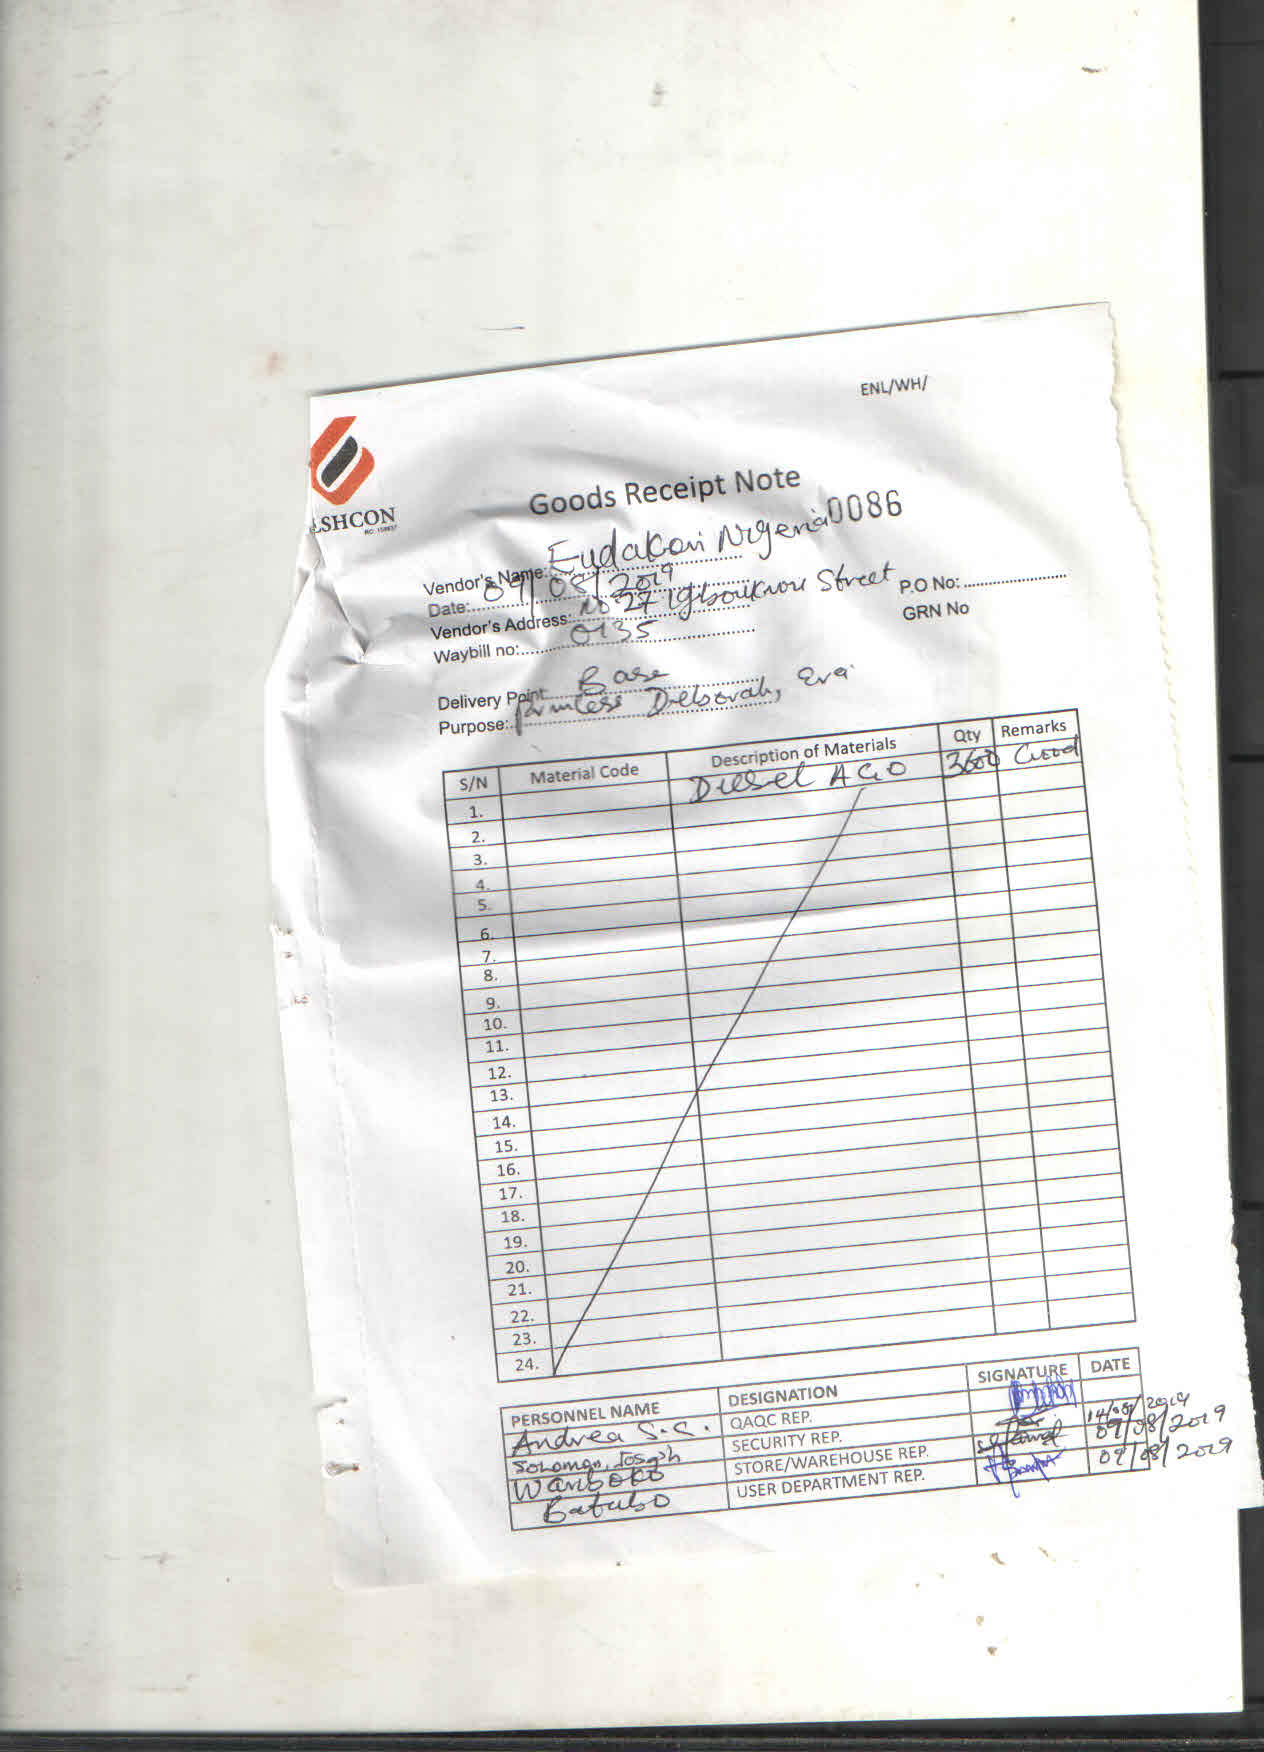 ENL/WH/
ELSHCON
Goods Receipt Note
0086
Vendor's Name: Eudakon Nigeria
Date: 09/08/2019
Vendor's Address: No 27 Igboukwu Street
P.O No:
Waybill no: 0135
GRN No
Delivery Point: Base
Purpose: Princess Deborah, Era
S/N Material Code Description of Materials Qty Remarks
1. Diesel AGO 3600 Good
2.
3.
4.
5.
6.
7.
8.
9.
10.
11.
12.
13.
14.
15.
16.
17.
18.
19.
20.
21.
22.
23.
24.
PERSONNEL NAME DESIGNATION SIGNATURE DATE
Andrea S.S. QAQC REP.
Solomon, Joseph SECURITY REP. 14/08/2019
Wariboko STORE/WAREHOUSE REP. 09/08/2019
Batubo USER DEPARTMENT REP. 09/08/2019